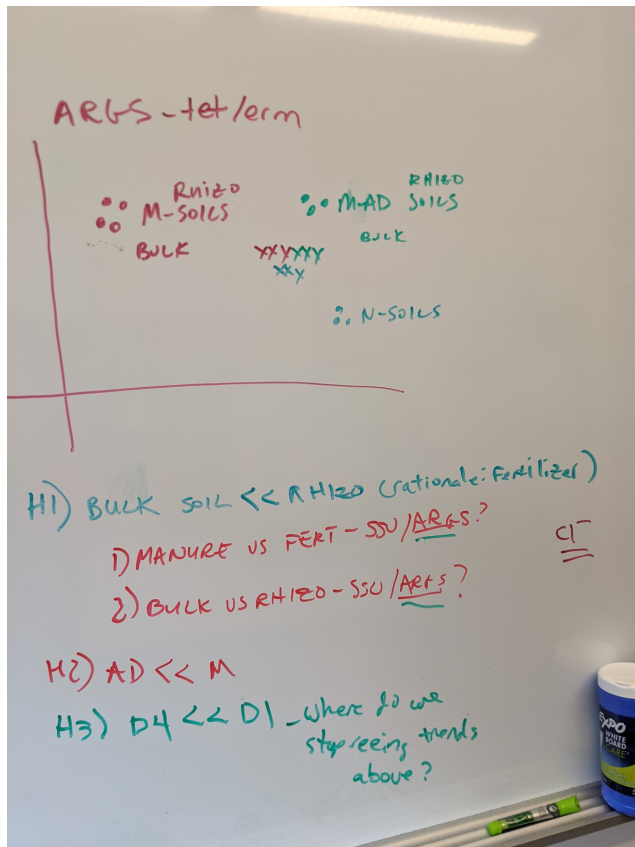 ARGS-tet/erm
RHIZO
M-SOILS
BULK
RHIZO
M-AD SOILS
BULK
XXYXXXY
XXY
N-SOILS
H1) BULK SOIL << RHIZO (rationale: Fertilizer)
1) MANURE VS FERT - SSU/ARGS?
2) BULK VS RHIZO - SSU/ARGS?
Cl⁻
H2) AD << M
H3) D4 << D1 - where do we
stop seeing trends
above?
EXPO
WHITE
BOARD
CARE